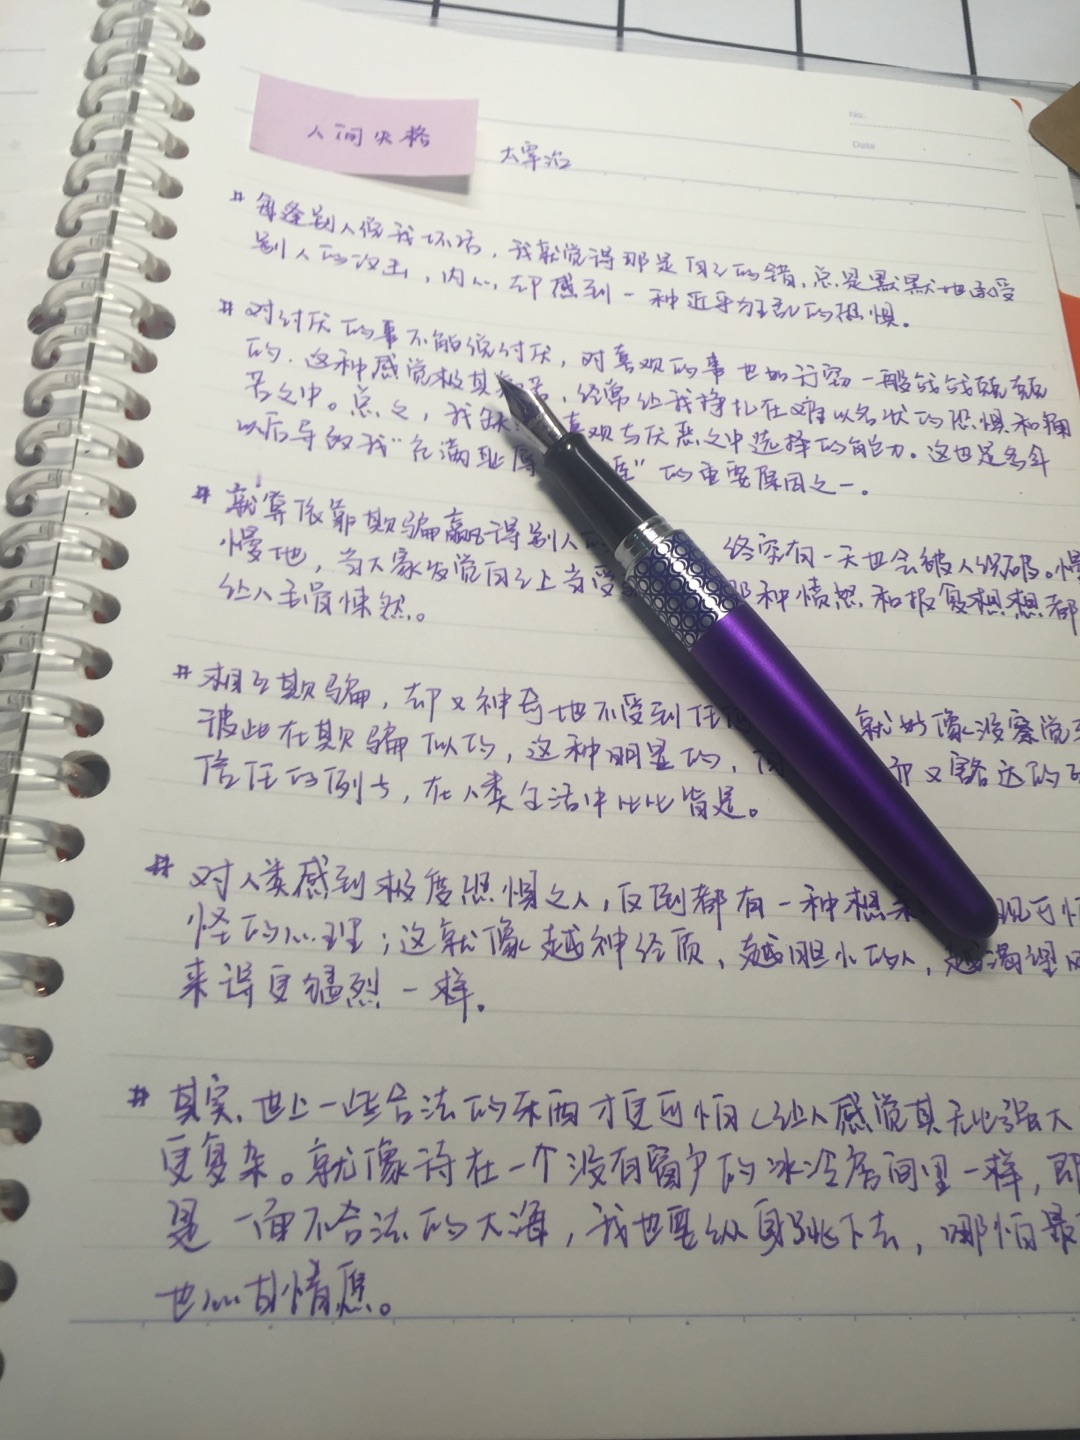 No.
Date
人间失格
太宰治
# 每逢别人说我坏话，我就觉得那是自己的错，总是默默地承受
别人的攻击，内心却感到一种近乎狂乱的恐惧。
# 对讨厌的事不能说讨厌，对喜欢的事也如行窃一般战战兢兢
的．这种感觉极其，经常让我挣扎在难以名状的恐惧和痛
苦之中。总之，我缺喜欢与厌恶之中选择的能力。这也是多年
以后导致我“充满耻”的重要原因之一。
# 就算依靠欺骗赢得别人的终究有一天也会被人识破。慢
慢地，当大家发觉自己上当受那种愤怒和报复想想都
让人毛骨悚然。
# 相互欺骗，却又神奇地不受到任就好像没察觉到
彼此在欺骗似的，这种明显的，却又豁达的
信任的例子，在人类生活中比比皆是。
# 对人类感到极度恐惧之人，反倒都有一种想现可怕
怪的心理；这就像越神经质、越胆小的人，越渴望
来得更猛烈一样。
# 其实，世上一些合法的东西才更可怕（让人感觉其无比强大
更复杂。就像待在一个没有窗户的冰冷房间里一样，即
是一面不合法的大海，我也要纵身跳下去，哪怕最
也心甘情愿。